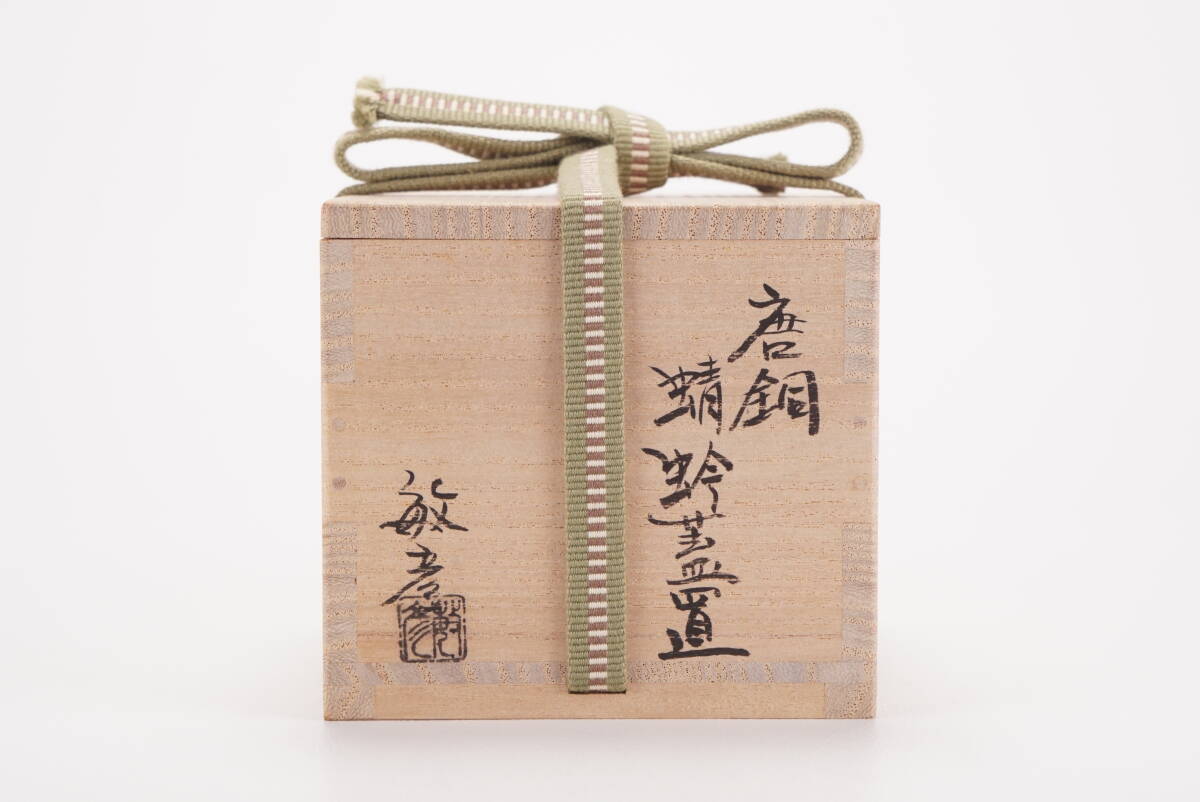 唐銅
蜻蛉蓋置
敏彦